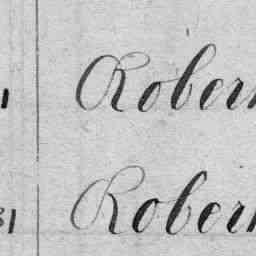 1 Rober
81 Rober